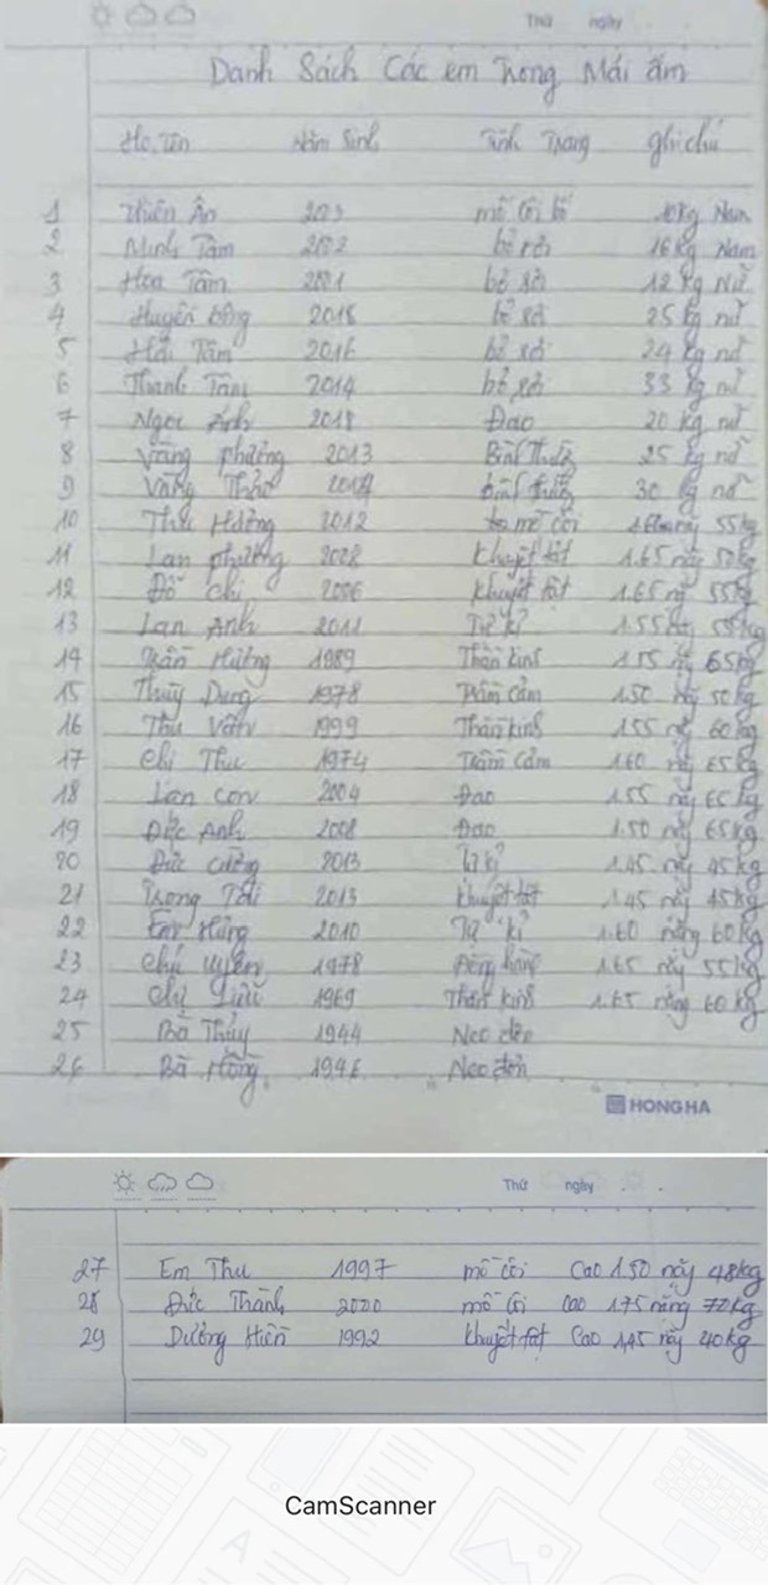 Thứ ngày
Danh Sách Các em trong Mái ấm
Họ, tên Năm Sinh Tình Trạng ghi chú
1 Thiên Ân mồ côi bố 10kg Nam
2 Minh Tâm bỏ rơi 16kg Nam
3 Hoa Tâm bỏ rơi 12 kg Nữ
4 Huyền 2018 bỏ rơi 25 kg nữ
5 Hải Tâm 2016 bỏ rơi 24 kg nữ
6 Thanh Tâm 2014 bỏ rơi 33 kg nữ
7 Ngọc Ánh 2018 Đao 20 kg nữ
8 Vàng phường 2013 Bình Thường 25 kg nữ
9 Vàng Thảo bình thường 30 kg nữ
10 Thu Hường 2012 mồ côi 55kg
11 Lan phường khuyết tật 1.65 nặng 50kg
12 Đỗ Chi 2006 khuyết tật 1.65 nặng 55kg
13 Lan Anh 2011 Tự kỉ 1.55 nặng 55kg
14 Trần Hường 1989 Thần kinh 1.55 nặng 65kg
15 Thùy Dung 1978 Trầm cảm 1.50 nặng 50kg
16 Thu Vân 1999 Thần kinh 1.55 nặng 60kg
17 Chị Thu 1974 Trầm cảm 1.60 nặng 65kg
18 Lan con 2004 Đao 1.55 nặng 65kg
19 Đức Anh 2008 Đao 1.50 nặng 65kg
20 Đức Cường 2013 Tự kỉ 1.45 nặng 45kg
21 Trọng Tài 2013 khuyết tật 1.45 nặng 45kg
22 Em Hùng 2010 Tự kỉ 1.60 nặng 60kg
23 Chú Uyên 1978 1.65 nặng 55kg
24 Chị Lưu 1969 Thần kinh 1.65 nặng 60kg
25 Bà Thủy 1944 Neo đơn
26 Bà Hồng Neo đơn
HONG HA
Thứ ngày
27 Em Thu 1997 mồ côi Cao 1.50 nặng 48kg
28 Đức Thành 2000 mồ côi Cao 1.75 nặng 72kg
29 Dường Hiền 1992 khuyết tật Cao 1,45 nặng 40kg
CamScanner